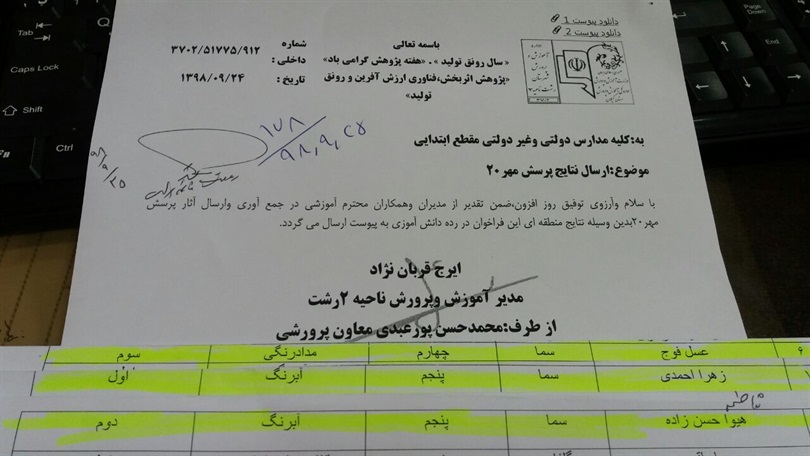 دانلود پیوست 1
دانلود پیوست 2
باسمه تعالی
«سال رونق تولید» . «هفته پژوهش گرامی باد»
«پژوهش اثربخش،فناوری ارزش آفرین و رونق
تولید»
شماره ۳۷۰۲/۵۱۷۷۵/۹۱۲
داخلی :
تاریخ : ۱۳۹۸/۰۹/۲۴
۱۷۸
۹۸,۹,۲۵
۹۸/۹/۲۵
به:کلیه مدارس دولتی وغیر دولتی مقطع ابتدایی
موضوع:ارسال نتایج پرسش مهر ۲۰
با سلام وآرزوی توفیق روز افزون،ضمن تقدیر از مدیران وهمکاران محترم آموزشی در جمع آوری وارسال آثار پرسش
مهر۲۰بدین وسیله نتایج منطقه ای این فراخوان در رده دانش آموزی به پیوست ارسال می گردد.
ایرج قربان نژاد
مدیر آموزش وپرورش ناحیه ۲رشت
از طرف:محمدحسن پورعبدی معاون پرورشی
۶ عسل فوج سما چهارم مدادرنگی سوم
زهرا احمدی سما پنجم آبرنگ اول
فاطمه
هیوا حسن زاده سما پنجم آبرنگ دوم
Tab
Caps Lock
Shift
Ctrl
Page Down
End